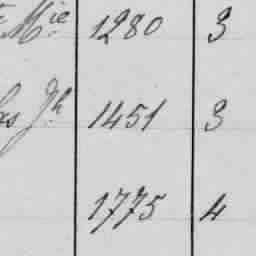 Mie 1280 3
Jh 1451 3
1775 4